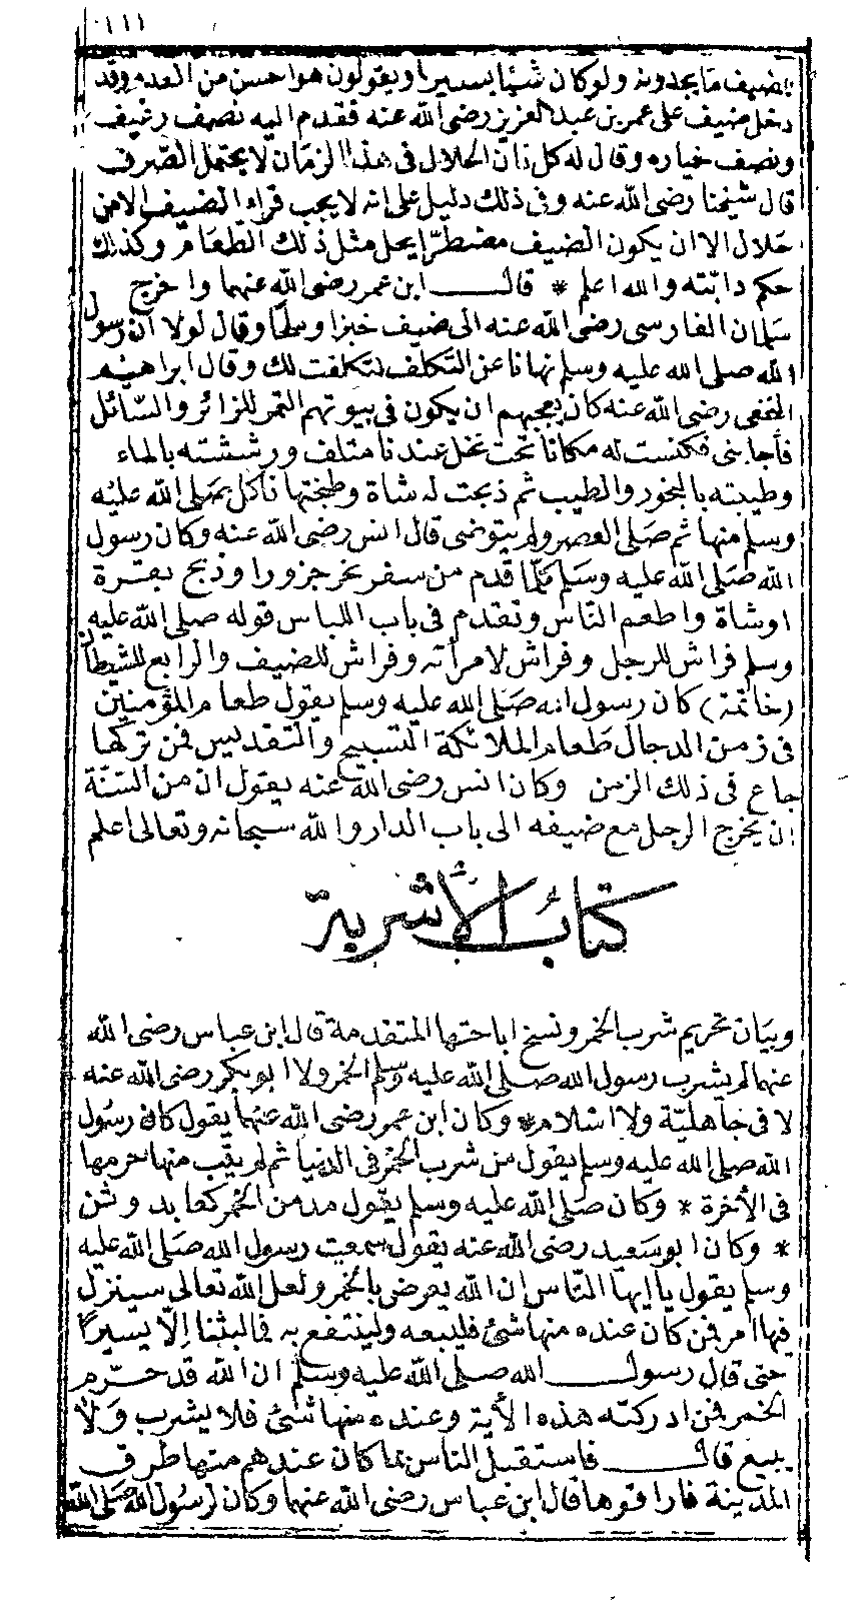 ١١١
للضيف ما يجدونه ولو كان شيأ يسيرا ويقولون هو احسن من العدم وقد
دخل ضيف على عمر بن عبد العزيز رضى الله عنه فقدم اليه نصف رغيف
ونصف خياره وقال له كل فان الحلال فى هذا الزمان لا يحتمل الصّرف
قال شيخنا رضى الله عنه وفى ذلك دليل على انه لا يجب قراء الضيف الا من
حلال الا ان يكون الضيف مضطرّا يحل مثل ذلك الطعام وكذلك
حكم دابّته والله اعلم * قال ابن عمر رضى الله عنهما واخرج
سلمان الفارسى رضى الله عنه الى ضيف خبزا وملحا وقال لولا ان رسول
الله صلى الله عليه وسلم نهانا عن التكلف لتكلفت لك وقال ابراهيم
النخعى رضى الله عنه كان يعجبهم ان يكون فى بيوتهم التمر للزائر والسّائل
فأجابنى فكنست له مكانا تحت نخل عندنا متلف ورششته بالماء
وطيبته بالبخور والطيب ثم ذبحت له شاة وطبختها فأكل صلى الله عليه
وسلم منها ثم صلى العصر ولم يتوضى قال انس رضى الله عنه وكان رسول
الله صلى الله عليه وسلم كلّما قدم من سفر نحر جزورا وذبح بقرة
او شاة واطعم الناس وتقدم فى باب اللباس قوله صلى الله عليه
وسلم فراش للرجل وفراش لامرأته وفراش للضيف والرابع للشيطان
(خاتمة) كان رسول الله صلى الله عليه وسلم يقول طعام المؤمنين
فى زمن الدجال طعام الملائكة التسبيح والتقديس فمن تركها
جاع فى ذلك الزمن وكان انس رضى الله عنه يقول ان من السّنّة
ان يخرج الرجل مع ضيفه الى باب الدار والله سبحانه وتعالى اعلم
كتاب الأشربة
وبيان تحريم شرب الخمر ونسخ اباحتها المتقدمة قال ابن عباس رضى الله
عنهما لم يشرب رسول الله صلى الله عليه وسلم الخمر ولا ابو بكر رضى الله عنه
لا فى جاهليّة ولا اسلام * وكان ابن عمر رضى الله عنهما يقول كان رسول
الله صلى الله عليه وسلم يقول من شرب الخمر فى الدنيا ثم لم يتب منها حرمها
فى الأخرة * وكان صلى الله عليه وسلم يقول مدمن الخمر كعابد وثن
* وكان ابو سعيد رضى الله عنه يقول سمعت رسول الله صلى الله عليه
وسلم يقول يا ايها الناس ان الله يعرض بالخمر ولعل الله تعالى سينزل
فيها امر فمن كان عنده منها شئ فليبعه ولينتفع به فما لبثنا الّا يسيراً
حتى قال رسول الله صلى الله عليه وسلم ان الله قد حرّم
الخمر فمن ادركته هذه الأية وعنده منها شئ فلا يشرب ولا
يبيع قال فاستقبل الناس بما كان عندهم منها طرق
المدينة فاراقوها قال ابن عباس رضى الله عنهما وكان لرسول الله صلى الله